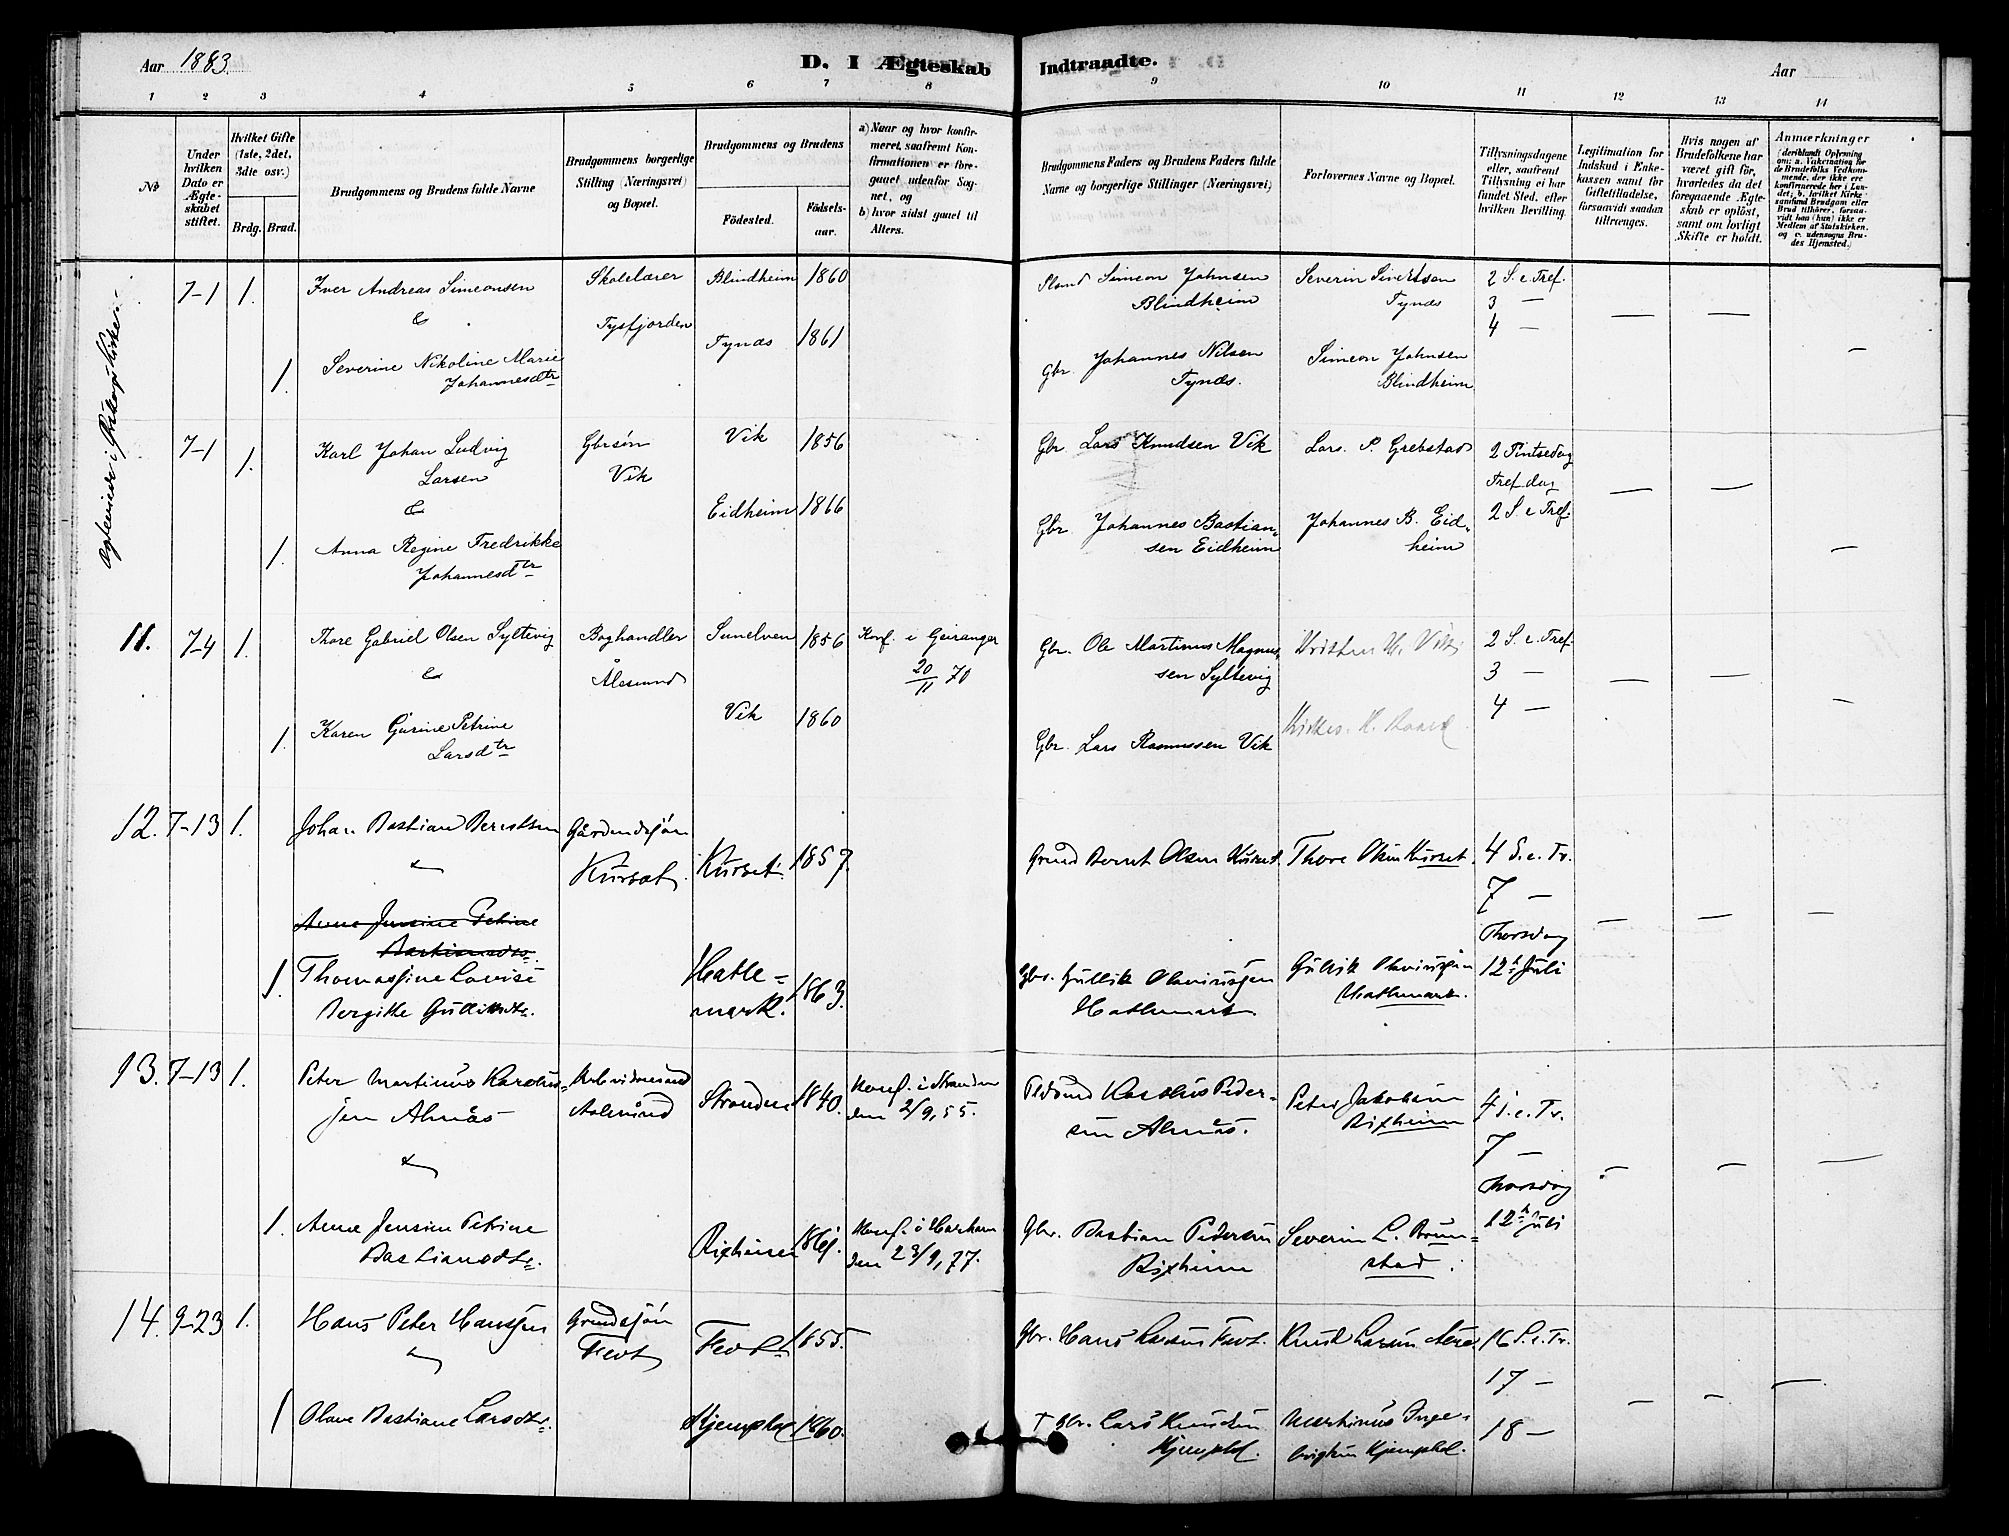 Aar 1883.
D. I Ægteskab Indtraadte.
Aar
1 2 3 4 5 6 7 8 9 10 11 12 13 14
No
Under hvilken Dato er Ægteskabet stiftet.
Hvilket Gifte (1ste, 2det, 3die osv.)
Brdg. Brud.
Brudgommens og Brudens fulde Navne
Brudgommens borgerlige Stilling (Næringsvei) og Bopæl.
Brudgommens og Brudens
Födested.
Födselsaar.
a) Naar og hvor konfirmeret, saafremt Konfirmationen er foregaaet udenfor Sognet, og
b) hvor sidst gaaet til Alters.
Brudgommens Faders og Brudens Faders fulde Navne og borgerlige Stillinger (Næringsvei)
Forlovernes Navne og Bopæl.
Tillysningsdagene eller, saafremt Tillysning ei har fundet Sted, efter hvilken Bevilling.
Legitimation for Indskud i Enkekassen samt for Giftetilladelse, forsaavidt saadan tiltrænges.
Hvis nogen af Brudefolkene har været gift för, hvorledes da det foregaaende Ægteskab er oplöst, samt om lovligt Skifte er holdt.
Anmærkninger
(deriblandt Oplysning om: a. Vakcination for de Brudefolks Vedkommende, der ikke ere konfirmerede her i Landet; b. hvilket Kirkesamfund Brudgom eller Brud tilhörer, forsaavidt han (hun) ikke er Medlem af Statskirken, og c. udensogns Brudes Hjemsted.)
7-1 1. Iver Andreas Simeonsen Skolelærer Blindheim 1860 Simeon Johnsen Severin Sivertsen 2 S. e. Tref.
& Tysfjorden Blindheim Tynæs 3 —
4 —
Severine Nikoline Marie Tynæs 1861 Gbr. Johannes Nilsen Simeon Johnsen
1. Johannesdtr Tynæs. Blindheim
7-1 1. Karl Johan Ludvig Gbrsön Vik 1856 Gbr Lars Knudsen Vik Lars. P. Grebstad 2 Pintsedag
Larsen Vik Tref. dag
& Eidheim 1866 Gbr Johannes Bastian- Johannes B. Eid- 2 S. e Tref.
1. Anna Regine Fredrikke sen Eidheim heim
Johannesdtr
11. 7-4 1. Thore Gabriel Olsen Syltevig Boghandler Sunelven 1856 Konf. i Geiranger Gbr. Ole Martinus Magnus- 2 S. e. Tref.
& Ålesund 20/11 70 sen Syltevig 3 —
1. Karen Gurine Petrine Vik 1860 4 —
Larsdtr Gbr. Lars Rasmussen Vik
12. 7-13 1. Johan Bastian Berntsen Gårdmdsjön
Kurset. Kurset. 1857. Bernt Olsen Kurset. Thore Olsen Kurset. 4 S. e. Tr.
7 —
Anne Jensine Petrine Thorsdag
Bastiansdtr. 12t Juli
1. Thomasjine Lovise Hatle- 1863. Gbr. Gullik Gullik
Bergitte Gulliksdtr. mark. Hatlemark. Hatlemark.
13. 7-13 1. Peter Martinus Karolus- Stranden 1840. Konf. i Stranden Karolus Peder- Peter Jakobsen 4 S. e. Tr.
sen Almås Aalesund den 2/9, 55. sen Almås. Rixheim 7 —
Thorsdag
1. Anne Jensine Petrine Rixheim 1861. Konf. i Harham Gbr. Bastian Pedersen Severin L. Brun- 12t Juli
Bastiansdtr. den 23/9, 77. Rixheim stad.
14. 9-23 1. Hans Peter Hansjen Grmdsjön Fevt 1855. Gbr. Hans Larsen Fevt. Knut Larsen 16 S. e. Tr.
Fevt 17 —
1 Olave Bastiane Larsdtr. Kjemphol 1860. Gbr. Lars Knudsen Martinus Inge- 18 —
Kjemphol. brigtsen Kjemphol.